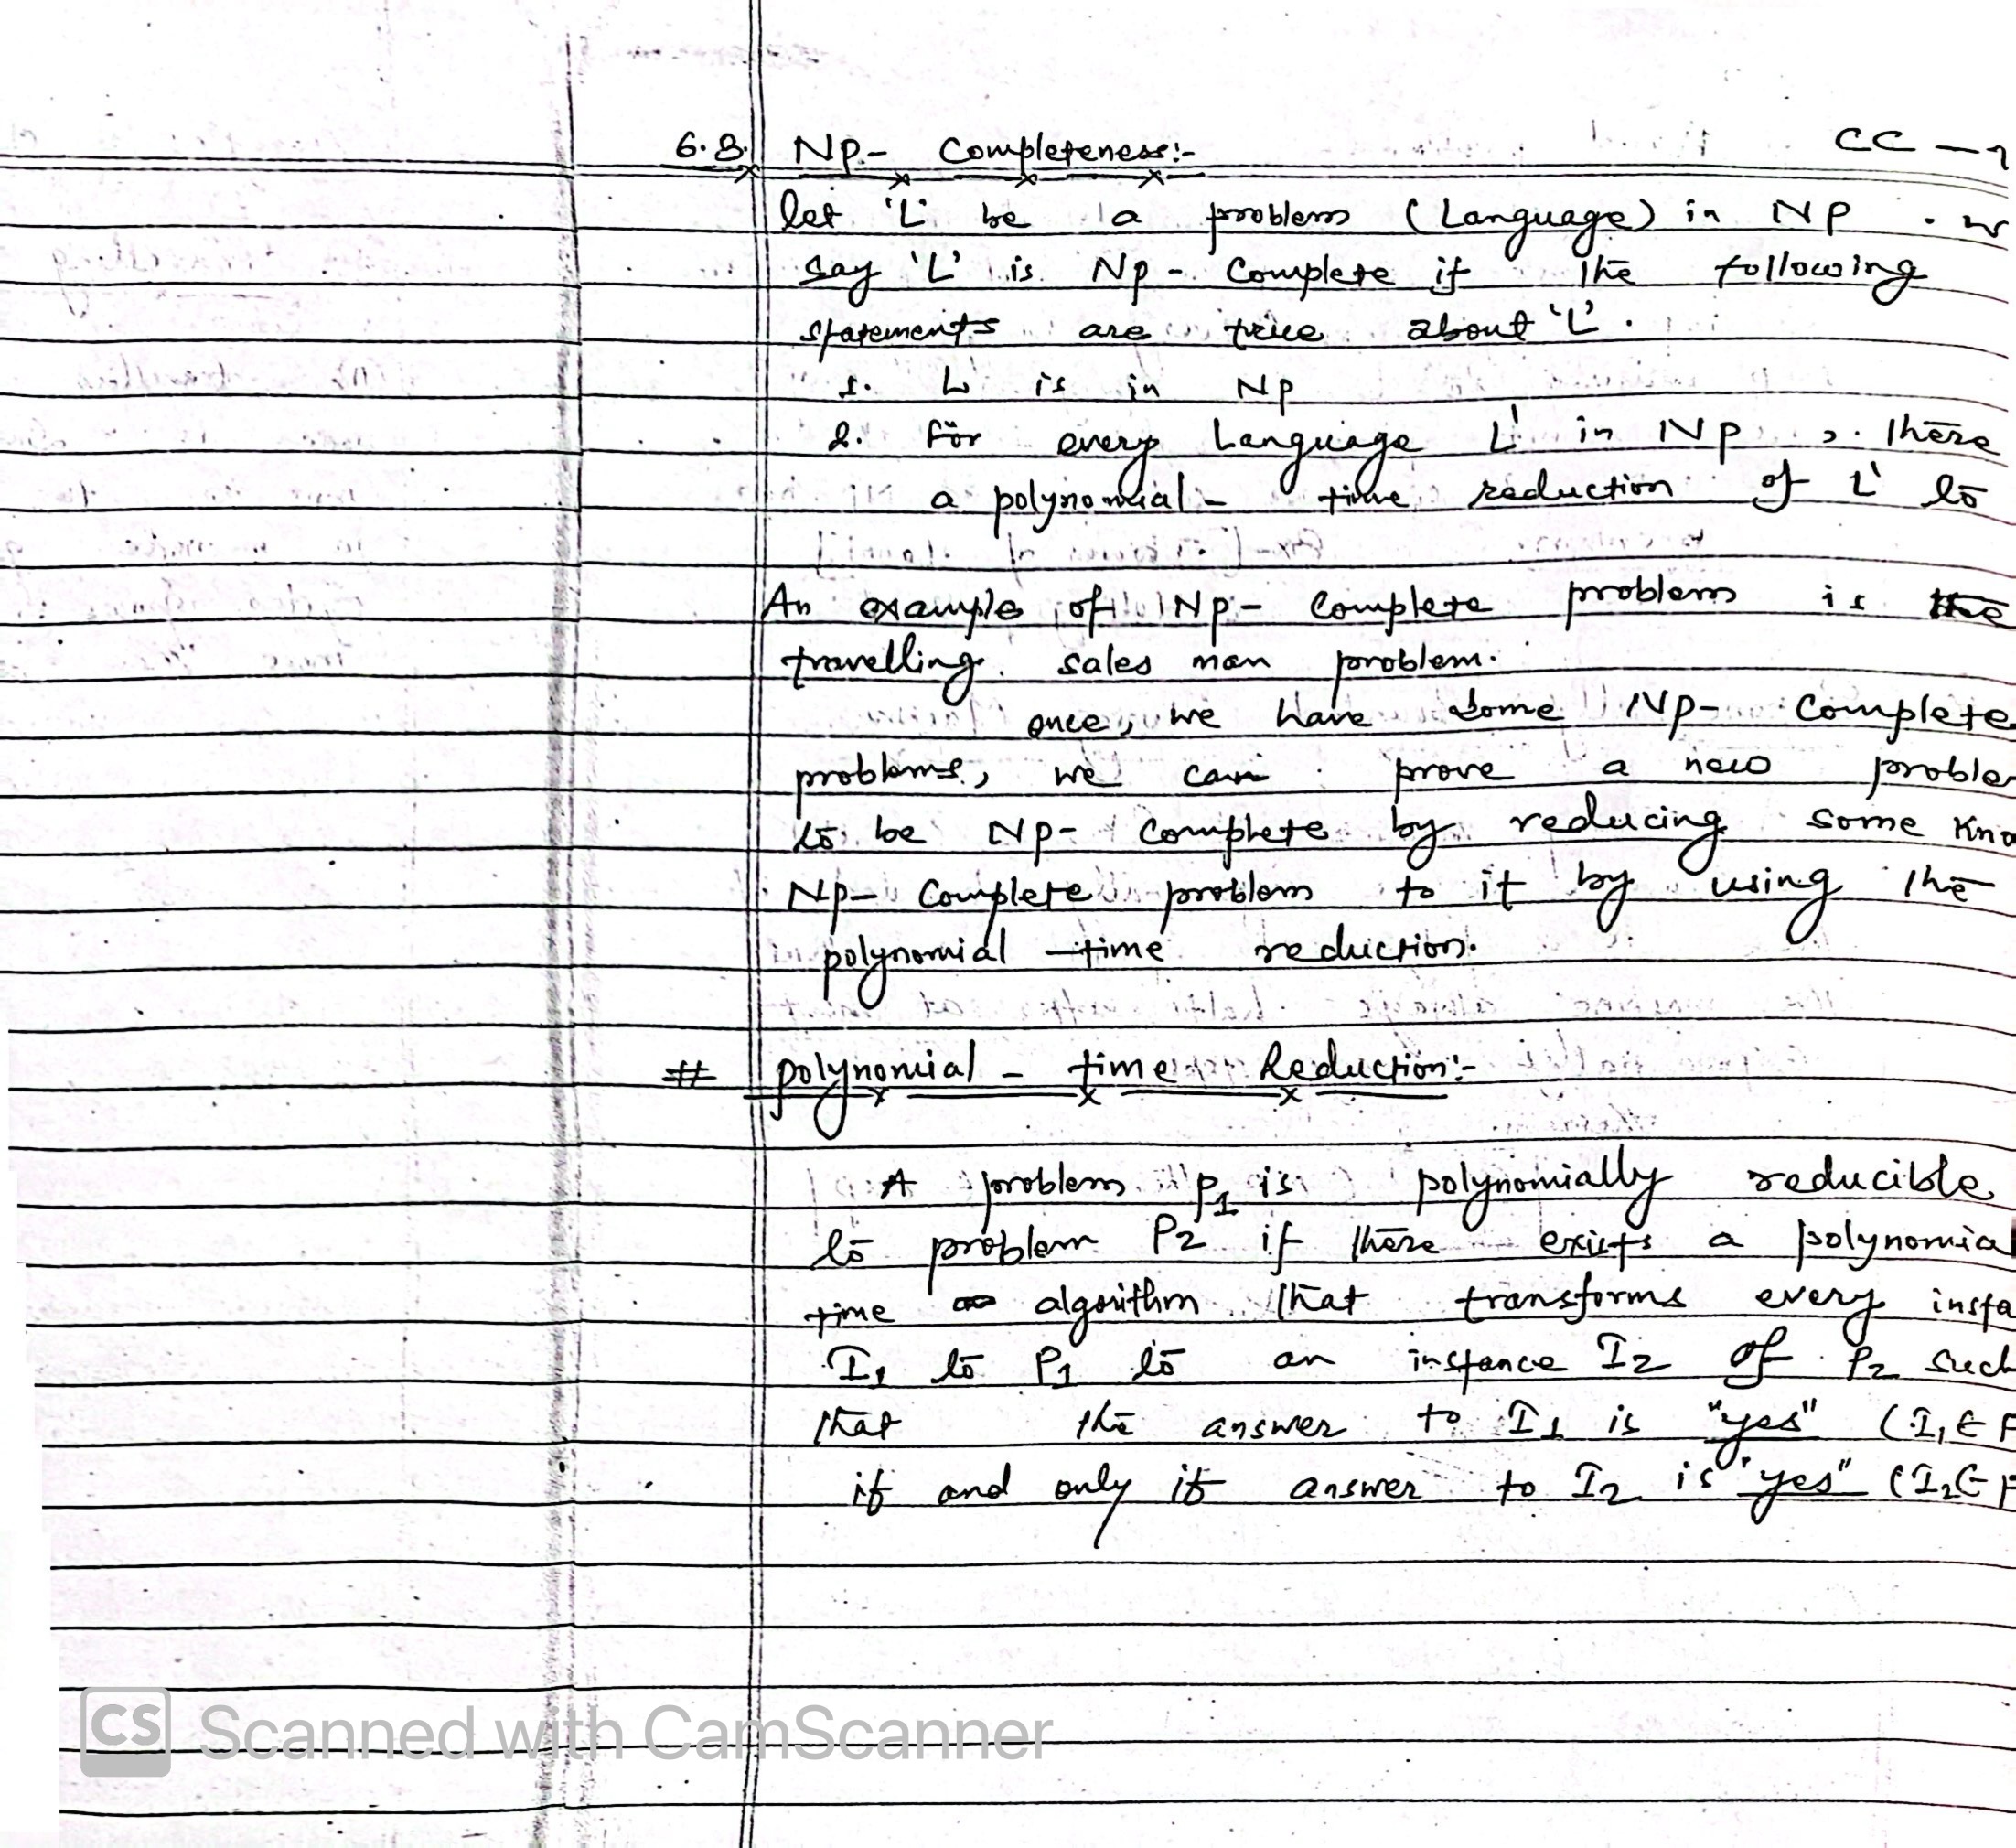 6.8. NP- Completeness:-
CC -
let 'L' be a problem (Language) in NP .
say 'L' is NP- Complete if the following
statements are true about 'L'.
1. L is in NP
2. For every Language L' in NP , there
a polynomial- time reduction of L' to
An example of NP- Complete problem is the
travelling sales man problem.
once, we have some NP- Complete
problems, we can prove a new proble
to be NP- Complete by reducing some Kno
NP- Complete problem to it by using the
polynomial -time reduction.
# polynomial - time Reduction:-
A problem P1 is polynomially reducible
to problem P2 if there exists a polynomial
time algorithm that transforms every insta
I1 to P1 to an instance I2 of P2 such
that the answer to I1 is "yes" (I1 ∈ P
if and only if answer to I2 is "yes" (I2 ∈ P
CS Scanned with CamScanner